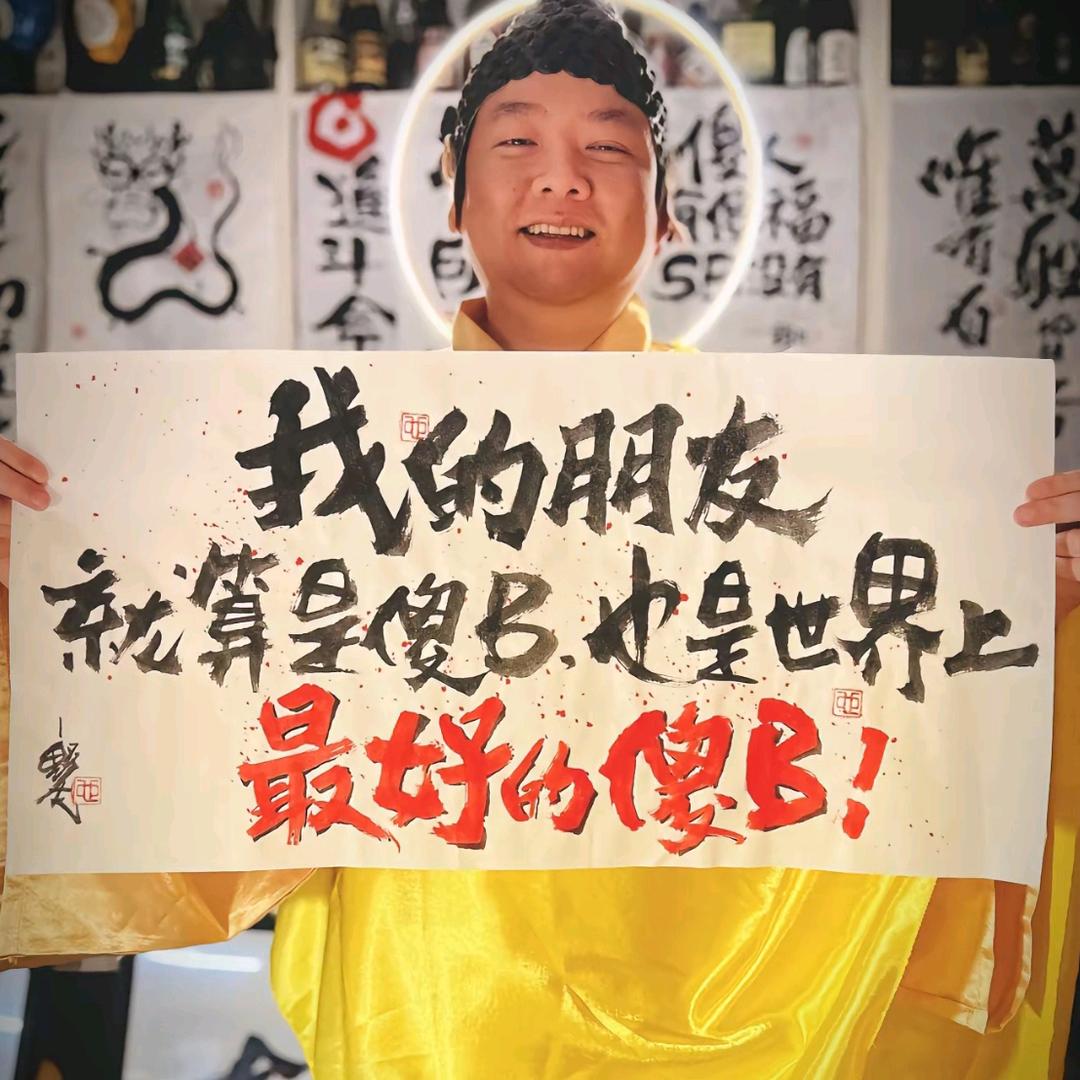 我的朋友
就算是傻B.也是世界上
最好的傻B!
進斗金
傻人
有傻福
SB没有
唯有自
萬般